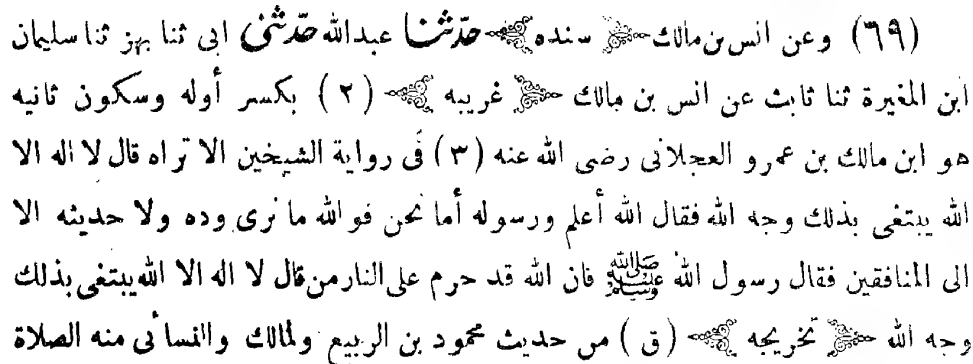 (٦٩) وعن انس بن مالك ﴿ سنده ﴾ حدّثنا عبدالله حدّثنى ابى ثنا بهز ثنا سليمان
ابن المغيرة ثنا ثابث عن انس بن مالك ﴿ غريبه ﴾ (٢) بكسر أوله وسكون ثانيه
هو ابن مالك بن عمرو العجلانى رضى الله عنه (٣) فى رواية الشيخين الا تراه قال لا اله الا
الله يبتغى بذلك وجه الله فقال الله أعلم ورسوله أما نحن فو الله ما نرى وده ولا حديثه الا
الى المنافقين فقال رسول الله ﷺ فان الله قد حرم على النار من قال لا اله الا الله يبتغى بذلك
وجه الله ﴿ تخريجه ﴾ (ق) من حديث محمود بن الربيع ولمالك والنسائى منه الصلاة